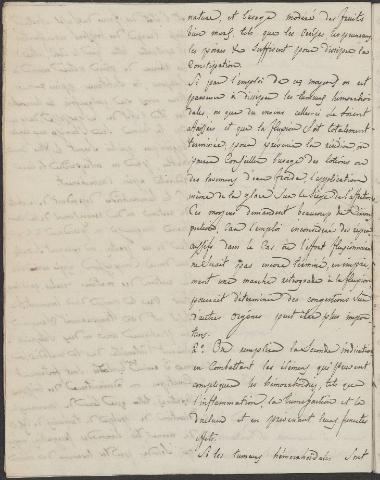 nature, et l'usage modéré des fruits
bien murs, tels que les cerises, les pruneaux,
les pommes & suffisent pour dissiper la
Constipation.
Si par l'emploi de ces moyens, on est
parvenu à dissiper les tumeurs hémorroi-
dales, ou que du moins celles-ci se soient
affaissées et que la fluxion soit totalement
terminée, pour prévenir la récidive on
pourra Conseiller l'usage des lotions ou
des lavemens d'eau froide, l'application
même de la glace sur le siège de l'affection.
Ces moyens demandent beaucoup de Circons-
pection, Car l'emploi inconsidéré des réper-
cussifs dans le Cas où l'effort fluxionnaire
ne serait pas encore terminé, en impri-
mant une marche rétrograde à la fluxion
pourrait déterminer des congestions sur
d'autres organes peut être plus impor-
tans.
2° On remplira la seconde indication
en Combattant les élémens qui peuvent
compliquer les hémorrhoïdes, tels que
l'inflammation, la tuméfaction et la
douleur et en prévenant leurs funestes
effets.
Si les tumeurs hémorroïdales sont